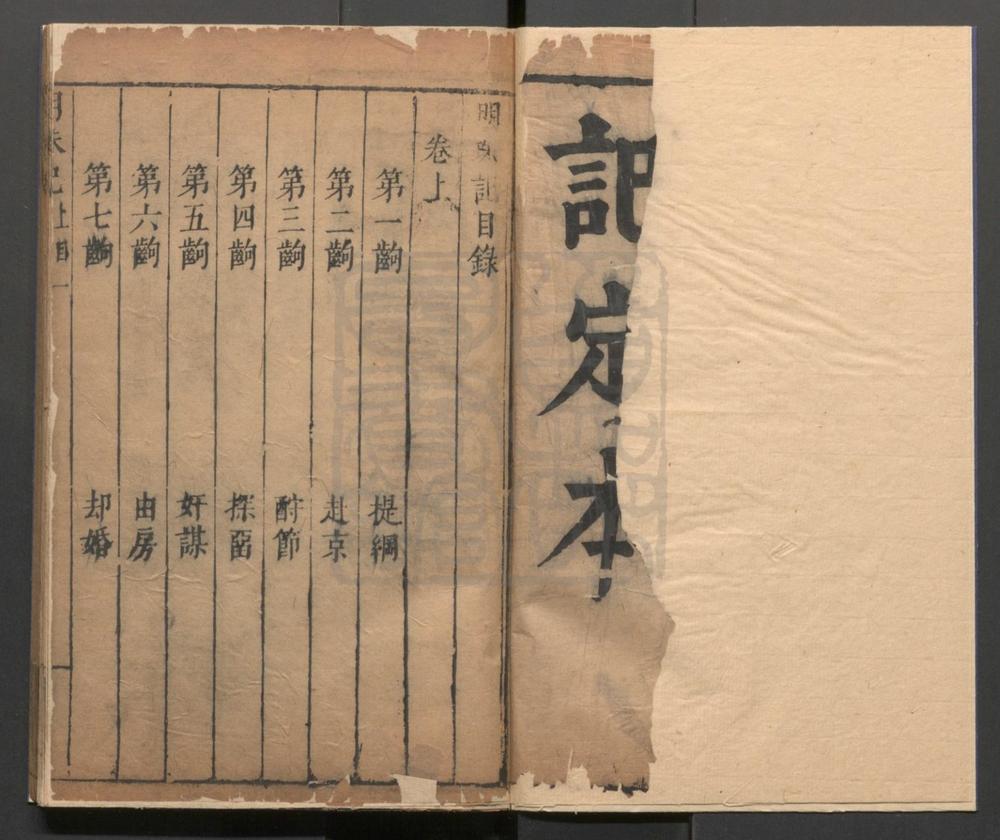 記定本
明珠記目錄
卷上
第一齣 提綱
第二齣 赴京
第三齣 酧節
第四齣 探畱
第五齣 奸謀
第六齣 由房
第七齣 却婚
明珠記上目一